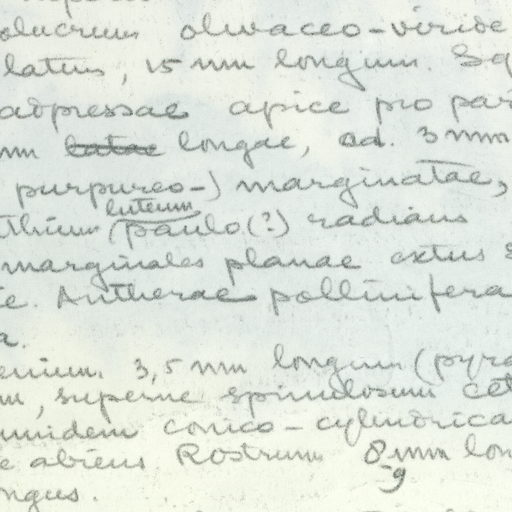 olucrum olivaceo-viride
latum, 15 mm longum. Sq
adpressae apice pro par
mm latae longae, ad. 3 mm
purpureo-) marginatae,
luteum
thium (paulo (?) radians
marginales planae extus
ie. Antherae pollinifera
a.
enium 3,5 mm longum (pyra
m, superne spinulosum cet
umidem conico-cylindrica
e abiens Rostrum 8 mm lon
-9
ngus.